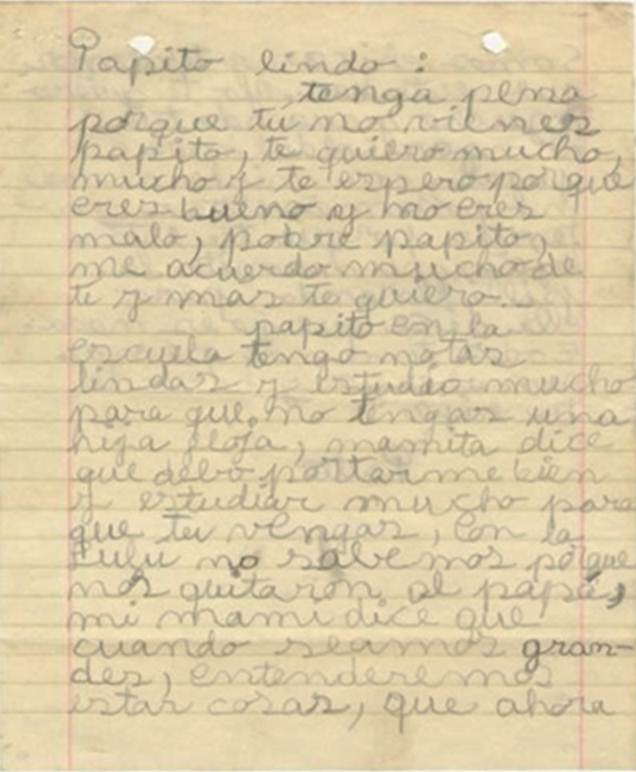 Papito lindo :
tenga pena
porque tu no vienes
papito, te quiero mucho,
mucho y te espero porque
eres bueno y no eres
malo, pobre papito,
me acuerdo mucho de
ti y mas te quiero...
papito en la
escuela tengo notas
lindas y estudio mucho
para que no tengas una
hija floja, mamita dice
que debo portarme bien
y estudiar mucho para
que tu vengas, con la
Lulu no sabemos porque
nos quitaron al papá,
mi mami dice que
cuando seamos gran-
des, entenderemos
estas cosas, que ahora